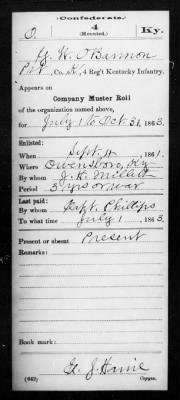 (Confederate.)
O 4 Ky.
(Mounted.)
G. W. O'Bannon
Pvt, Co. , 4 Reg't Kentucky Infantry.
Appears on
Company Muster Roll
of the organization named above,
for July 1 to Oct 31, 1863.
Enlisted:
When Sept 11, 1861.
Where Owensboro, Ky
By whom J. K. Millett
Period 3 yrs or war
Last paid:
By whom Capt. Phillips
To what time July 1, 1863.
Present or absent Present
Remarks:
Book mark:
(642) Copyist.